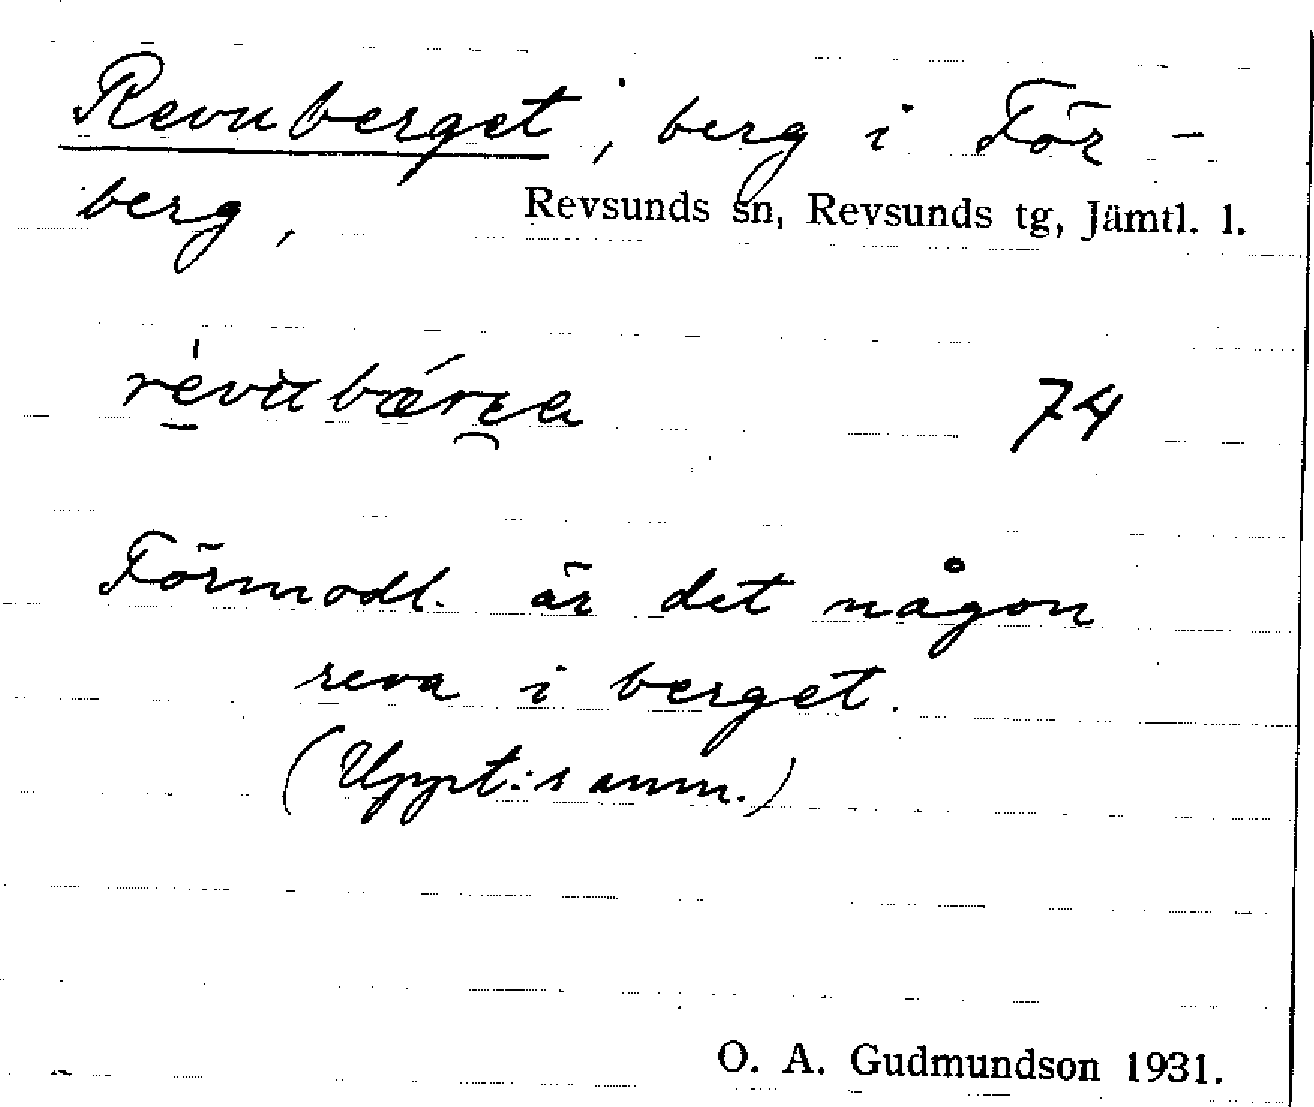 Revuberget, berg i För-
berg, Revsunds sn, Revsunds tg, Jämtl. l.
74
Förmodl. är det någon
reva i berget.
(Uppt:s anm.)
O. A. Gudmundson 1931.